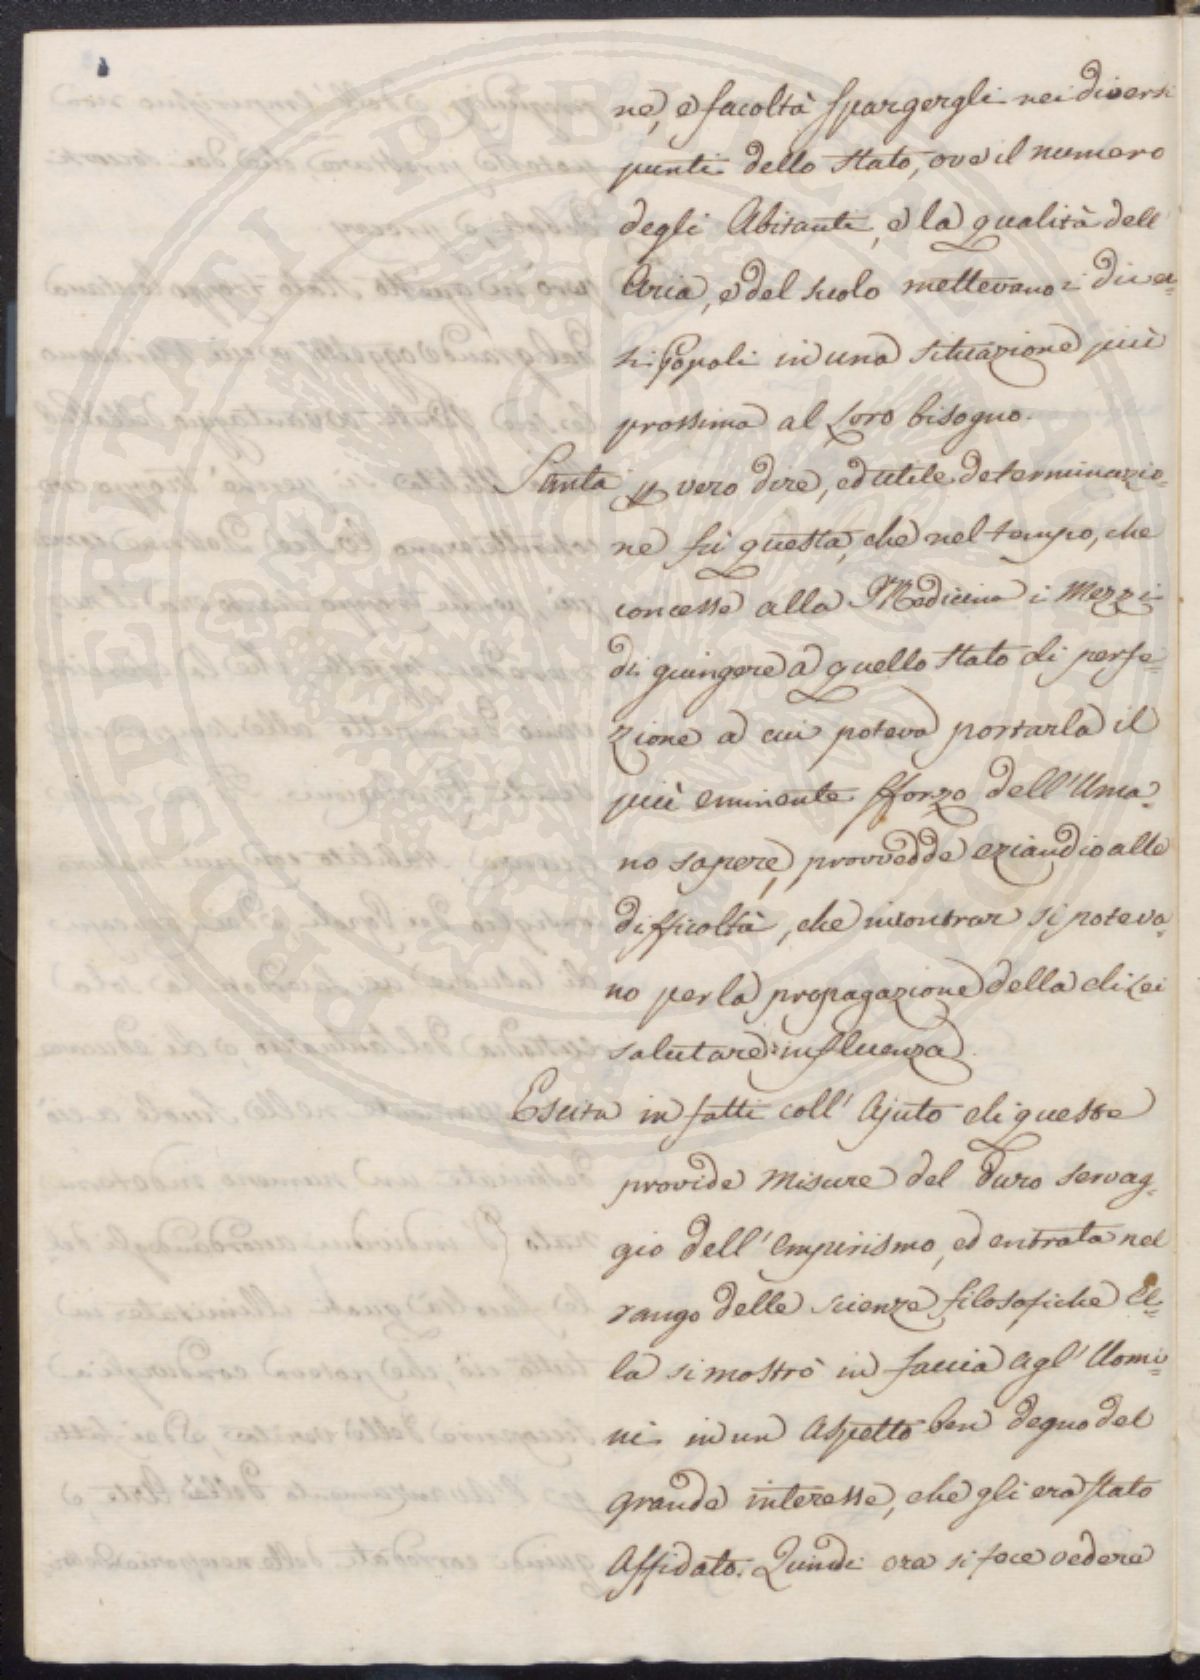 ne, e facoltà spargergli nei diversi
punti dello Stato, ove il numero
degli Abitanti, e la qualità dell'
Aria, e del suolo mettevano i diver=
si Popoli in una situazione più
prossima al Loro bisogno.
Santa p vero dire, ed utile determinazio=
ne fù questa, che nel tempo, che
concesse alla Medicina i Mezzi
di giungere a quello Stato di perfe=
zione a cui poteva portarla il
più eminente sforzo dell'Uma=
no sapere, provvedde eziandio alle
difficoltà, che incontrar si poteva=
no per la propagazione della di Lei
salutare influenza.
Escita in fatti coll' Ajuto di queste
provide Misure del duro servag=
gio dell'Empirismo, ed entrata nel
rango delle scienze filosofiche El=
la si mostrò in faccia agl'Uomi=
ni in un Aspetto ben degno del
grande interesse, che gli era stato
Affidato. Quindi ora si fece vedere